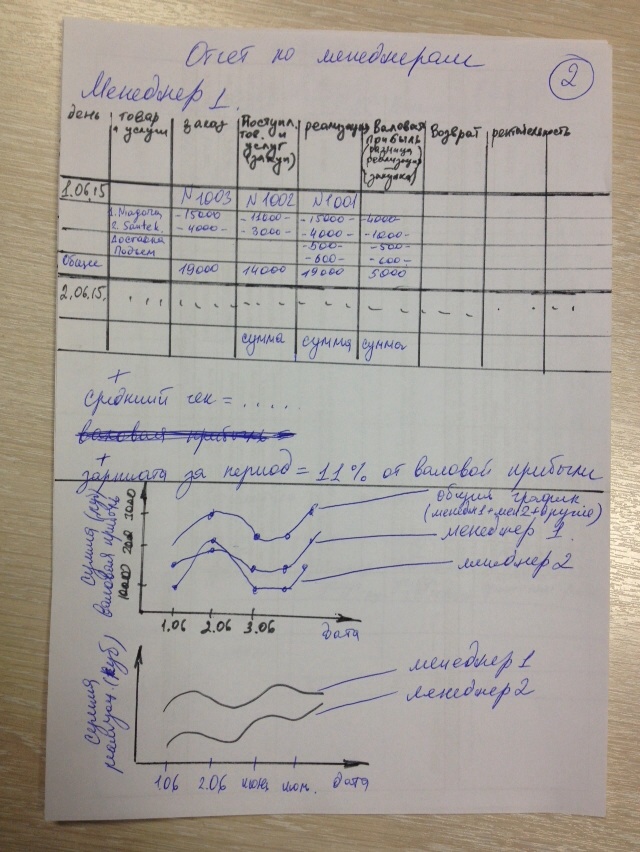 Отчет по менеджерам
2
Менеджер 1.
день | товар и услуги | заказ | Поступл. тов. и услуг (закуп) | реализация | Валовая прибыль (разница реализация — закупка) | Возврат | рентабельность
1.06.15 | N1003 | N1002 | N1001
-15000- | -11000- | -15000- | -4000-
2. Santek. | -4000- | -3000- | -4000- | -1000-
Доставка | -500- | -500-
Подъем | -600- | -600-
Общее | 19000 | 14000 | 19000 | 5000
2.06.15.
сумма | сумма | сумма
+
средний чек = .....
валовая прибыль =
+
зарплата за период = 11% от валовой прибыли
сумма (руб)
валовая прибыль
общий график
менеджер 1
менеджер 2
1.06 2.06 3.06 дата
сумма
реализац. (руб)
менеджер 1
менеджер 2
1.06 2.06 дата